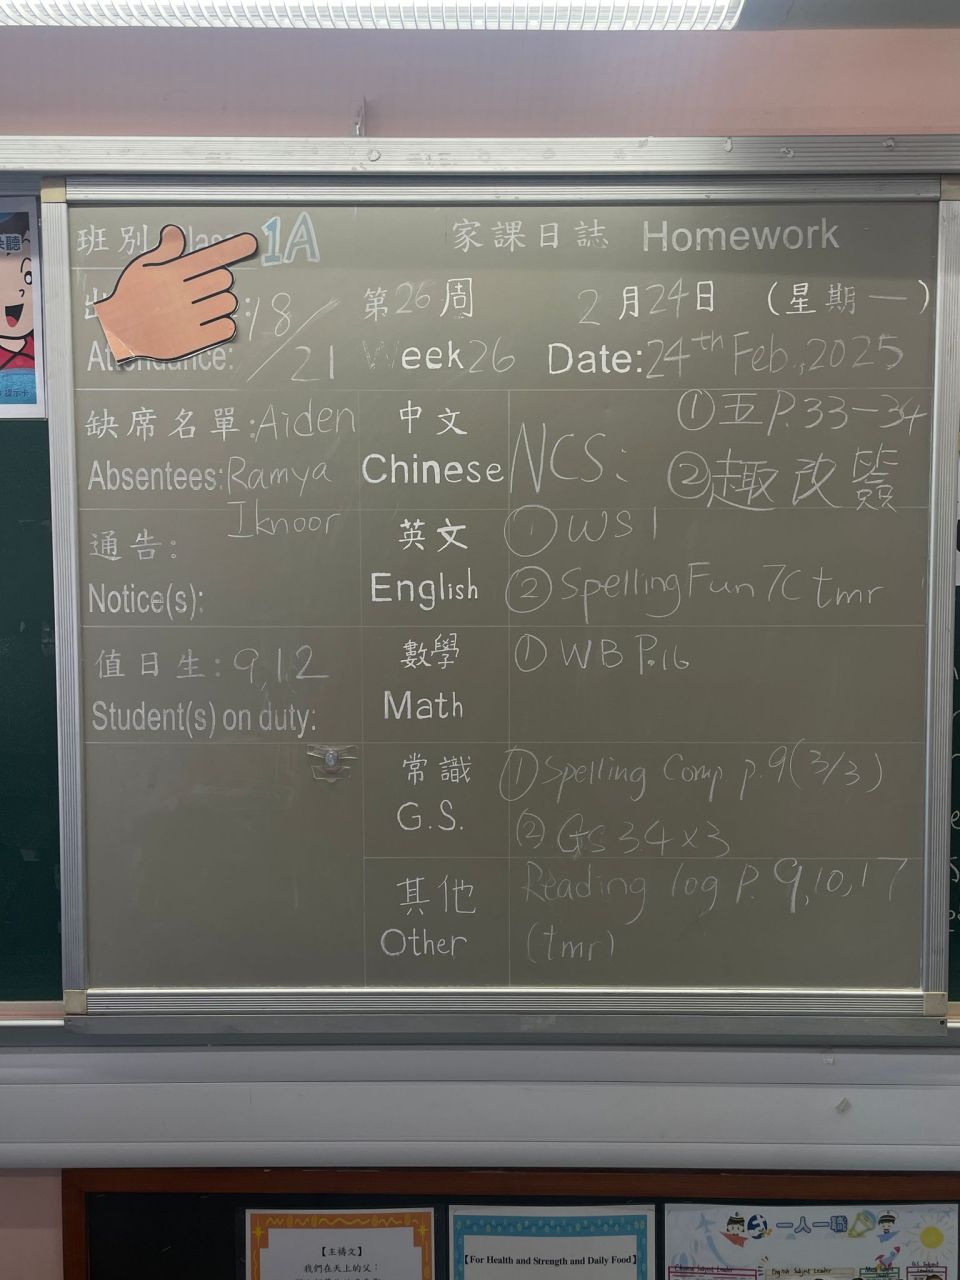 班別 Class 1A 家課日誌 Homework
18/21 第26周 2月24日 (星期一)
Attendance: Week 26 Date: 24th Feb., 2025
缺席名單: Aiden
Absentees: Ramya
Iknoor
中文
Chinese
NCS: ① 五 P.33-34
② 趣 改 簽
通告:
Notice(s):
英文
English
① WS 1
② Spelling Fun 7C tmr
值日生: 9, 12
Student(s) on duty:
數學
Math
① WB P.16
常識
G.S.
① Spelling Comp. p.9 (3/3)
② GS 34 x3
其他
Other
Reading log P. 9, 10, 17
(tmr)
提示卡
【主禱文】
我們在天上的父:
【For Health and Strength and Daily Food】
一人一職
Chinese Subject Leader
English Subject Leader